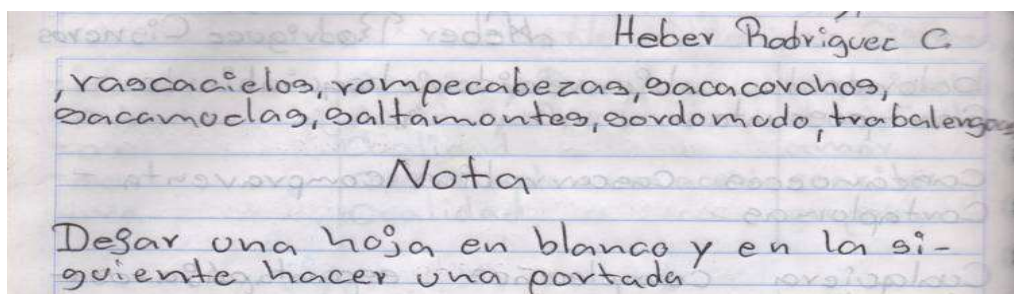 Heber Rodriguec C.
, rascacielos, rompecabezas, sacacorchos,
sacamuelas, saltamontes, sordomudo, trabalenguas
Nota
Dejar una hoja en blanco y en la si-
guiente hacer una portada